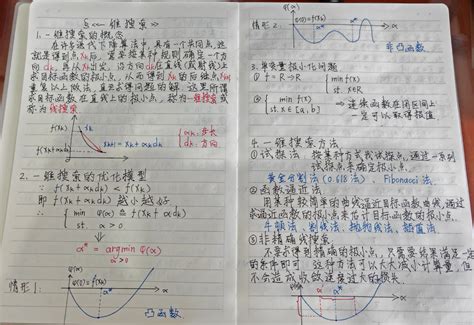 § 一维搜索
1. 一维搜索的概念
在许多迭代下降算法中，具有一个共同点，这
就是得到点xk后，需要按某种规则确定一个方
向dk，再从xk出发，沿方向dk在直线(或射线)上
求目标函数的极小点，从而得到xk的后继点xk+1
重复以上做法，直至求得问题的解。这里所谓
求目标函数在直线上的极小点，称为一维搜索或
称为线搜索
f(xk)
xk
xk+1 = xk + αkdk
f(xk+αkdk)
αk: 步长
dk: 方向
2. 一维搜索的优化模型
∵ f(xk + αkdk) < f(xk)
即 f(xk + αkdk) 越小越好
∴ { min φ(α) ≜ f(xk + αdk)
st. α > 0
α* = argmin φ(α)
α>0
情形1:
φ(α)
φ(0) = f(xk)
α*
α
凸函数
情形2:
φ(α)
φ(0)=f(xk)
α
非凸函数
3. 单变量极小化问题
① f = R → R { min f(x)
st. x∈R
② { min f(x)
st. x∈[a,b] ⇒ 连续函数在闭区间上
一定可以取得极值
4. 一维搜索方法
① 试探法 按某种方式找试探点，通过一系列
试探点来确定极小点
黄金分割法(0.618法)、Fibonacci法
② 函数逼近法
用某种较简单的曲线逼近目标函数曲线，通过
求逼近函数的极小点来估计目标函数的极小点。
牛顿法、割线法、抛物线法、插值法
③ 非精确线搜索
不要求得到精确的极小点，只需要结果满足一定
的条件即可，这种方法可以大大减小计算量，但
不会造成收敛速度过大的损失
φ(α)
φ(0)=f(xk)
α*
α